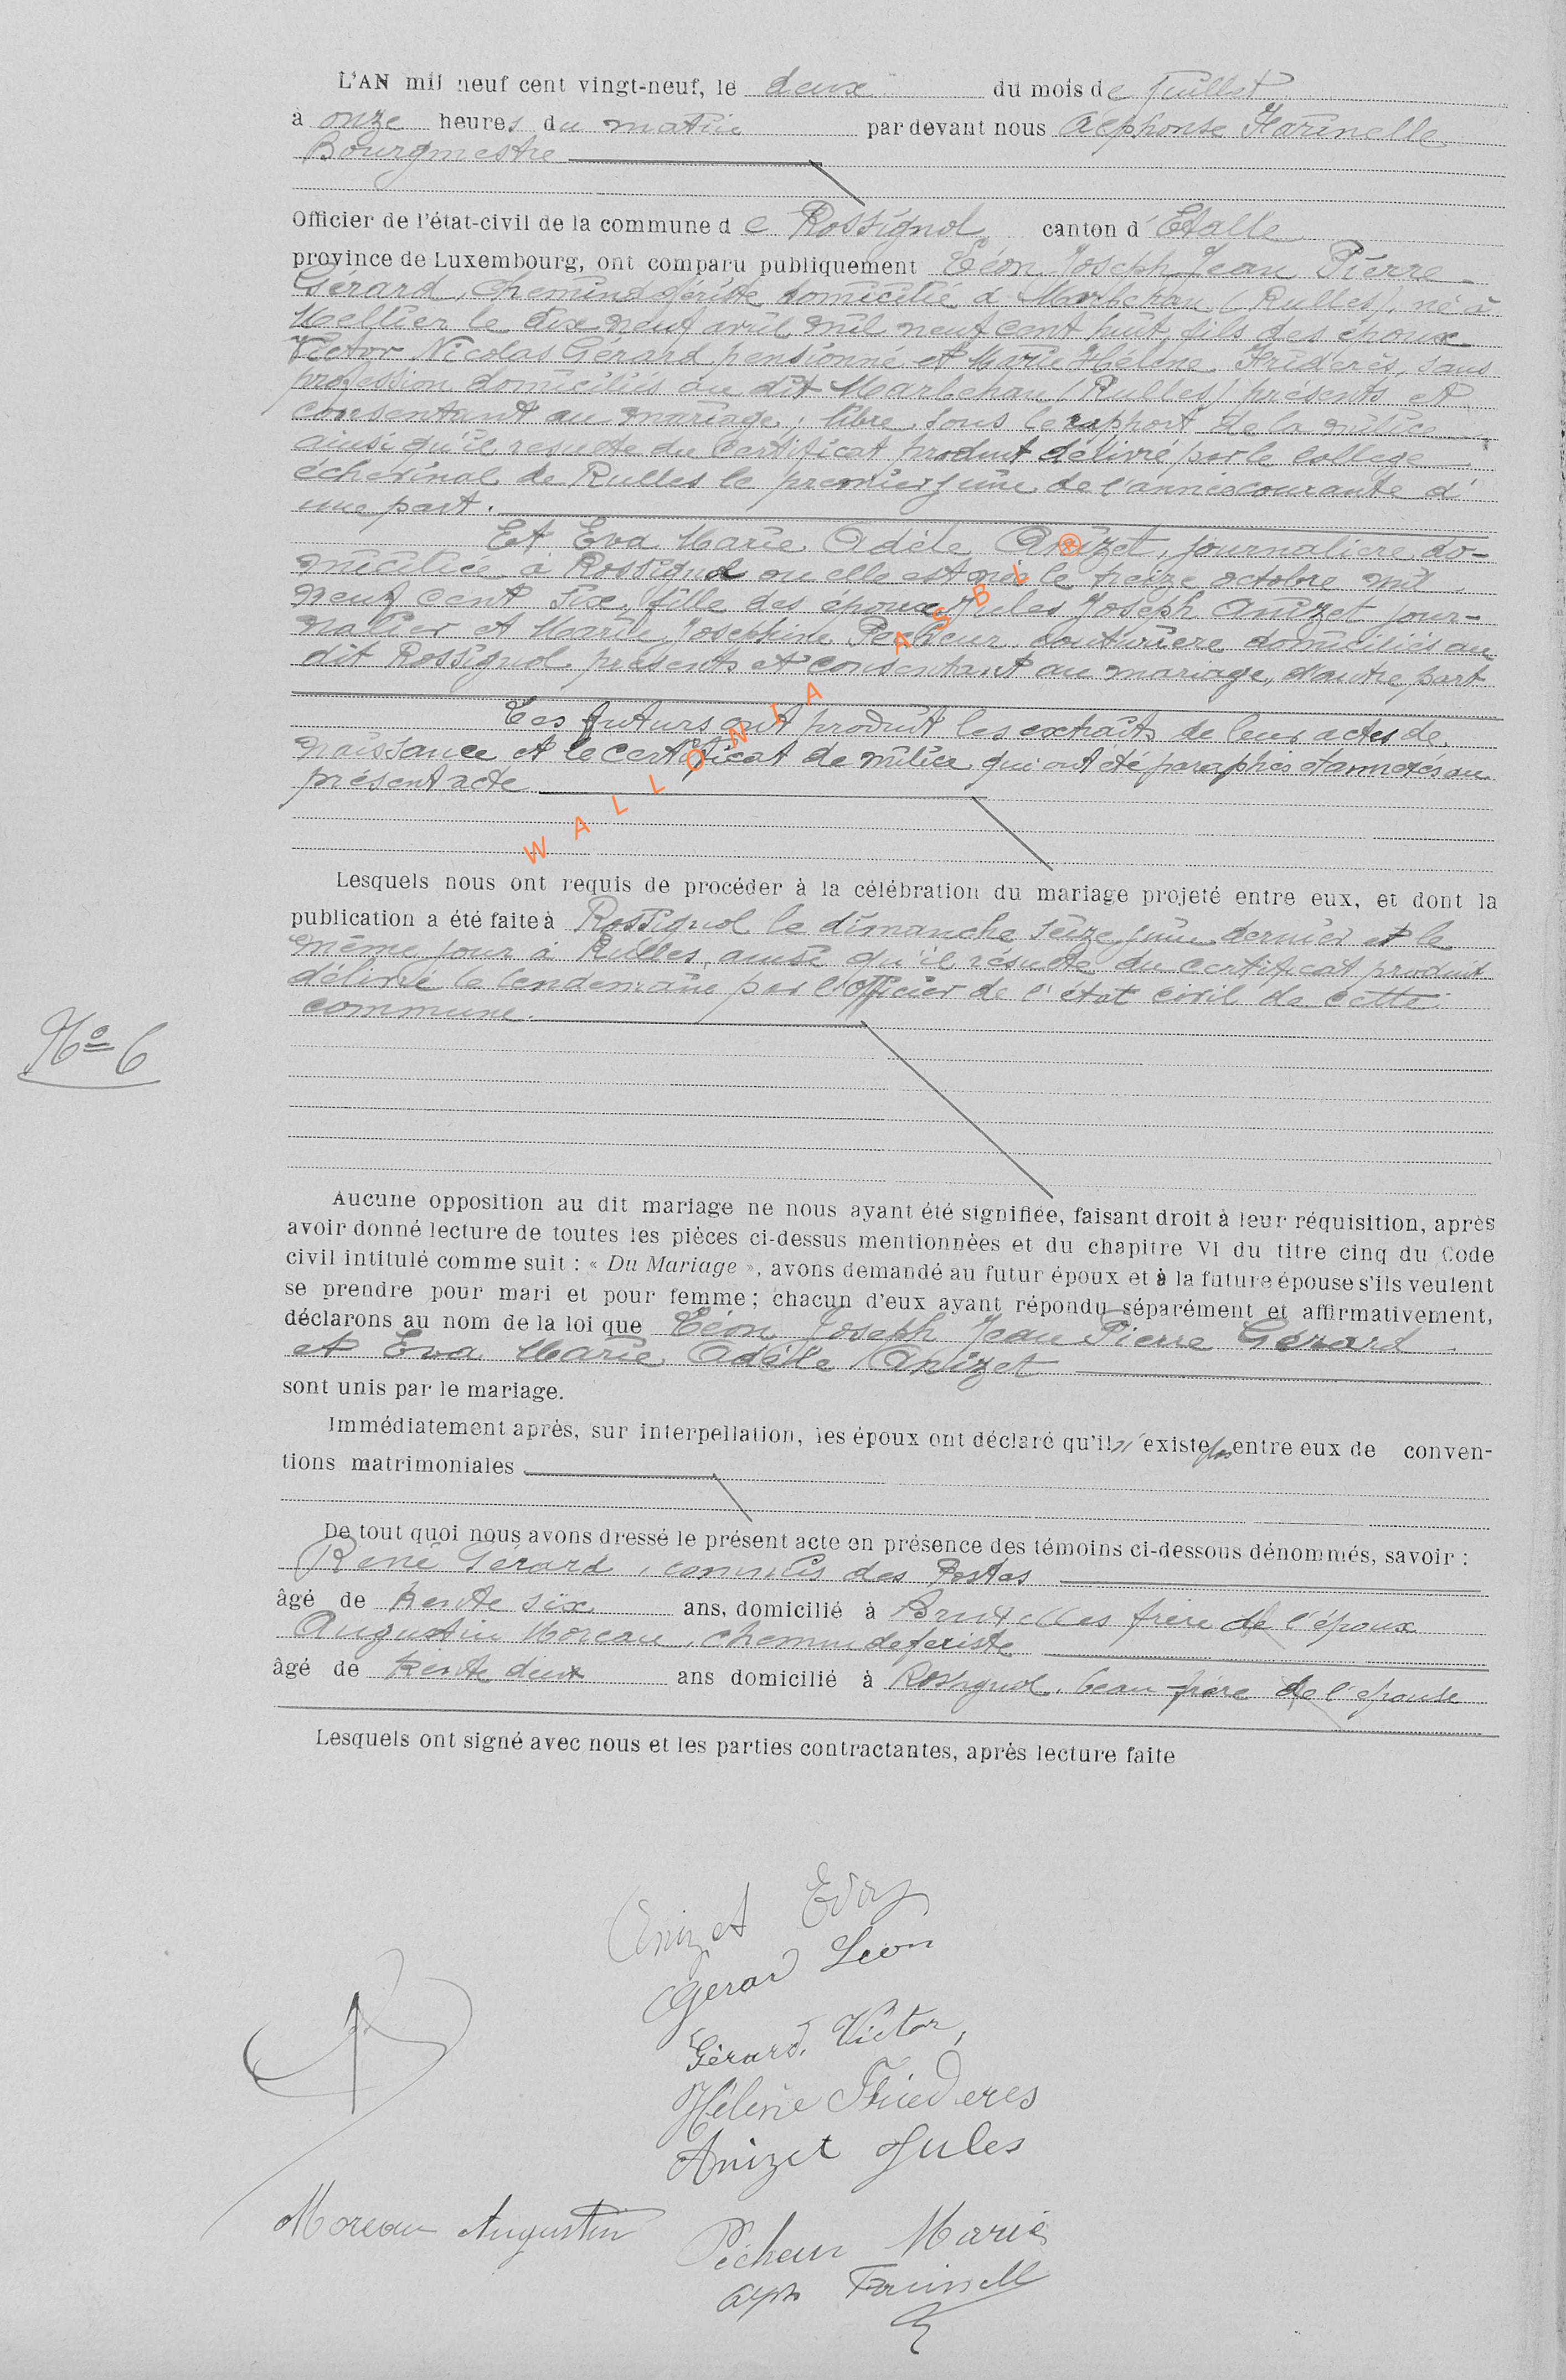 L'AN mil neuf cent vingt-neuf, le deux du mois de Juillet
à onze heures du matin par devant nous Alphonse Farinelle
Bourgmestre
Officier de l'état-civil de la commune de Rossignol canton d'Etalle
province de Luxembourg, ont comparu publiquement Léon Joseph Jean Pierre
Gérard, Chemindefériste domicilié à Marbehan (Rulles), né à
Mellier le dix neuf avril mil neuf cent huit, fils des époux
Victor Nicolas Gérard pensionné et Marie Hélène Friderès, sans
profession domiciliés au dit Marbehan (Rulles) présents et
consentant au mariage; libre sous le rapport de la milice
ainsi qu'il résulte du certificat produit délivré par le collège
échevinal de Rulles le premier juin de l'année courante d'
une part.
Et Eva Marie Adèle Anizet, journalière do-
miciliée à Rossignol ou elle est née le treize octobre mil
neuf cent six, fille des époux Jules Joseph Anizet jour-
nalier et Marie Josephine Pecheur, couturière domiciliés au
dit Rossignol présents et consentant au mariage, d'autre part
Les futurs ont produit les extraits de leurs actes de
naissance et le certificat de milice qui ont été paraphés et annexés au
présent acte
WALLONIA ASBL ®
Lesquels nous ont requis de procéder à la célébration du mariage projeté entre eux, et dont la
publication a été faite à Rossignol le dimanche seize juin dernier et le
même jour à Rulles, ainsi qu'il résulte du certificat produit
délivré le lendemain par l'Officier de l'état civil de cette
commune.
No 6
Aucune opposition au dit mariage ne nous ayant été signifiée, faisant droit à leur réquisition, après
avoir donné lecture de toutes les pièces ci-dessus mentionnées et du chapitre VI du titre cinq du Code
civil intitulé comme suit : « Du Mariage », avons demandé au futur époux et à la future épouse s'ils veulent
se prendre pour mari et pour femme ; chacun d'eux ayant répondu séparément et affirmativement,
déclarons au nom de la loi que Léon Joseph Jean Pierre Gérard
et Eva Marie Adèle Anizet
sont unis par le mariage.
Immédiatement après, sur interpellation, les époux ont déclaré qu'il n'existe pas entre eux de conven-
tions matrimoniales
De tout quoi nous avons dressé le présent acte en présence des témoins ci-dessous dénommés, savoir :
René Gérard, commis des Postes
âgé de trente six ans, domicilié à Bruxelles frère de l'époux
Augustin Moreau, chemindefériste
âgé de trente deux ans domicilié à Rossignol, beau-frère de l'épouse
Lesquels ont signé avec nous et les parties contractantes, après lecture faite
Anizet Eva
Gerard Léon
Gérard. Victor,
Hélène Friederes
Anizet Jules
Moreau Augustin
Pécheur Marie
Alph Farinelle